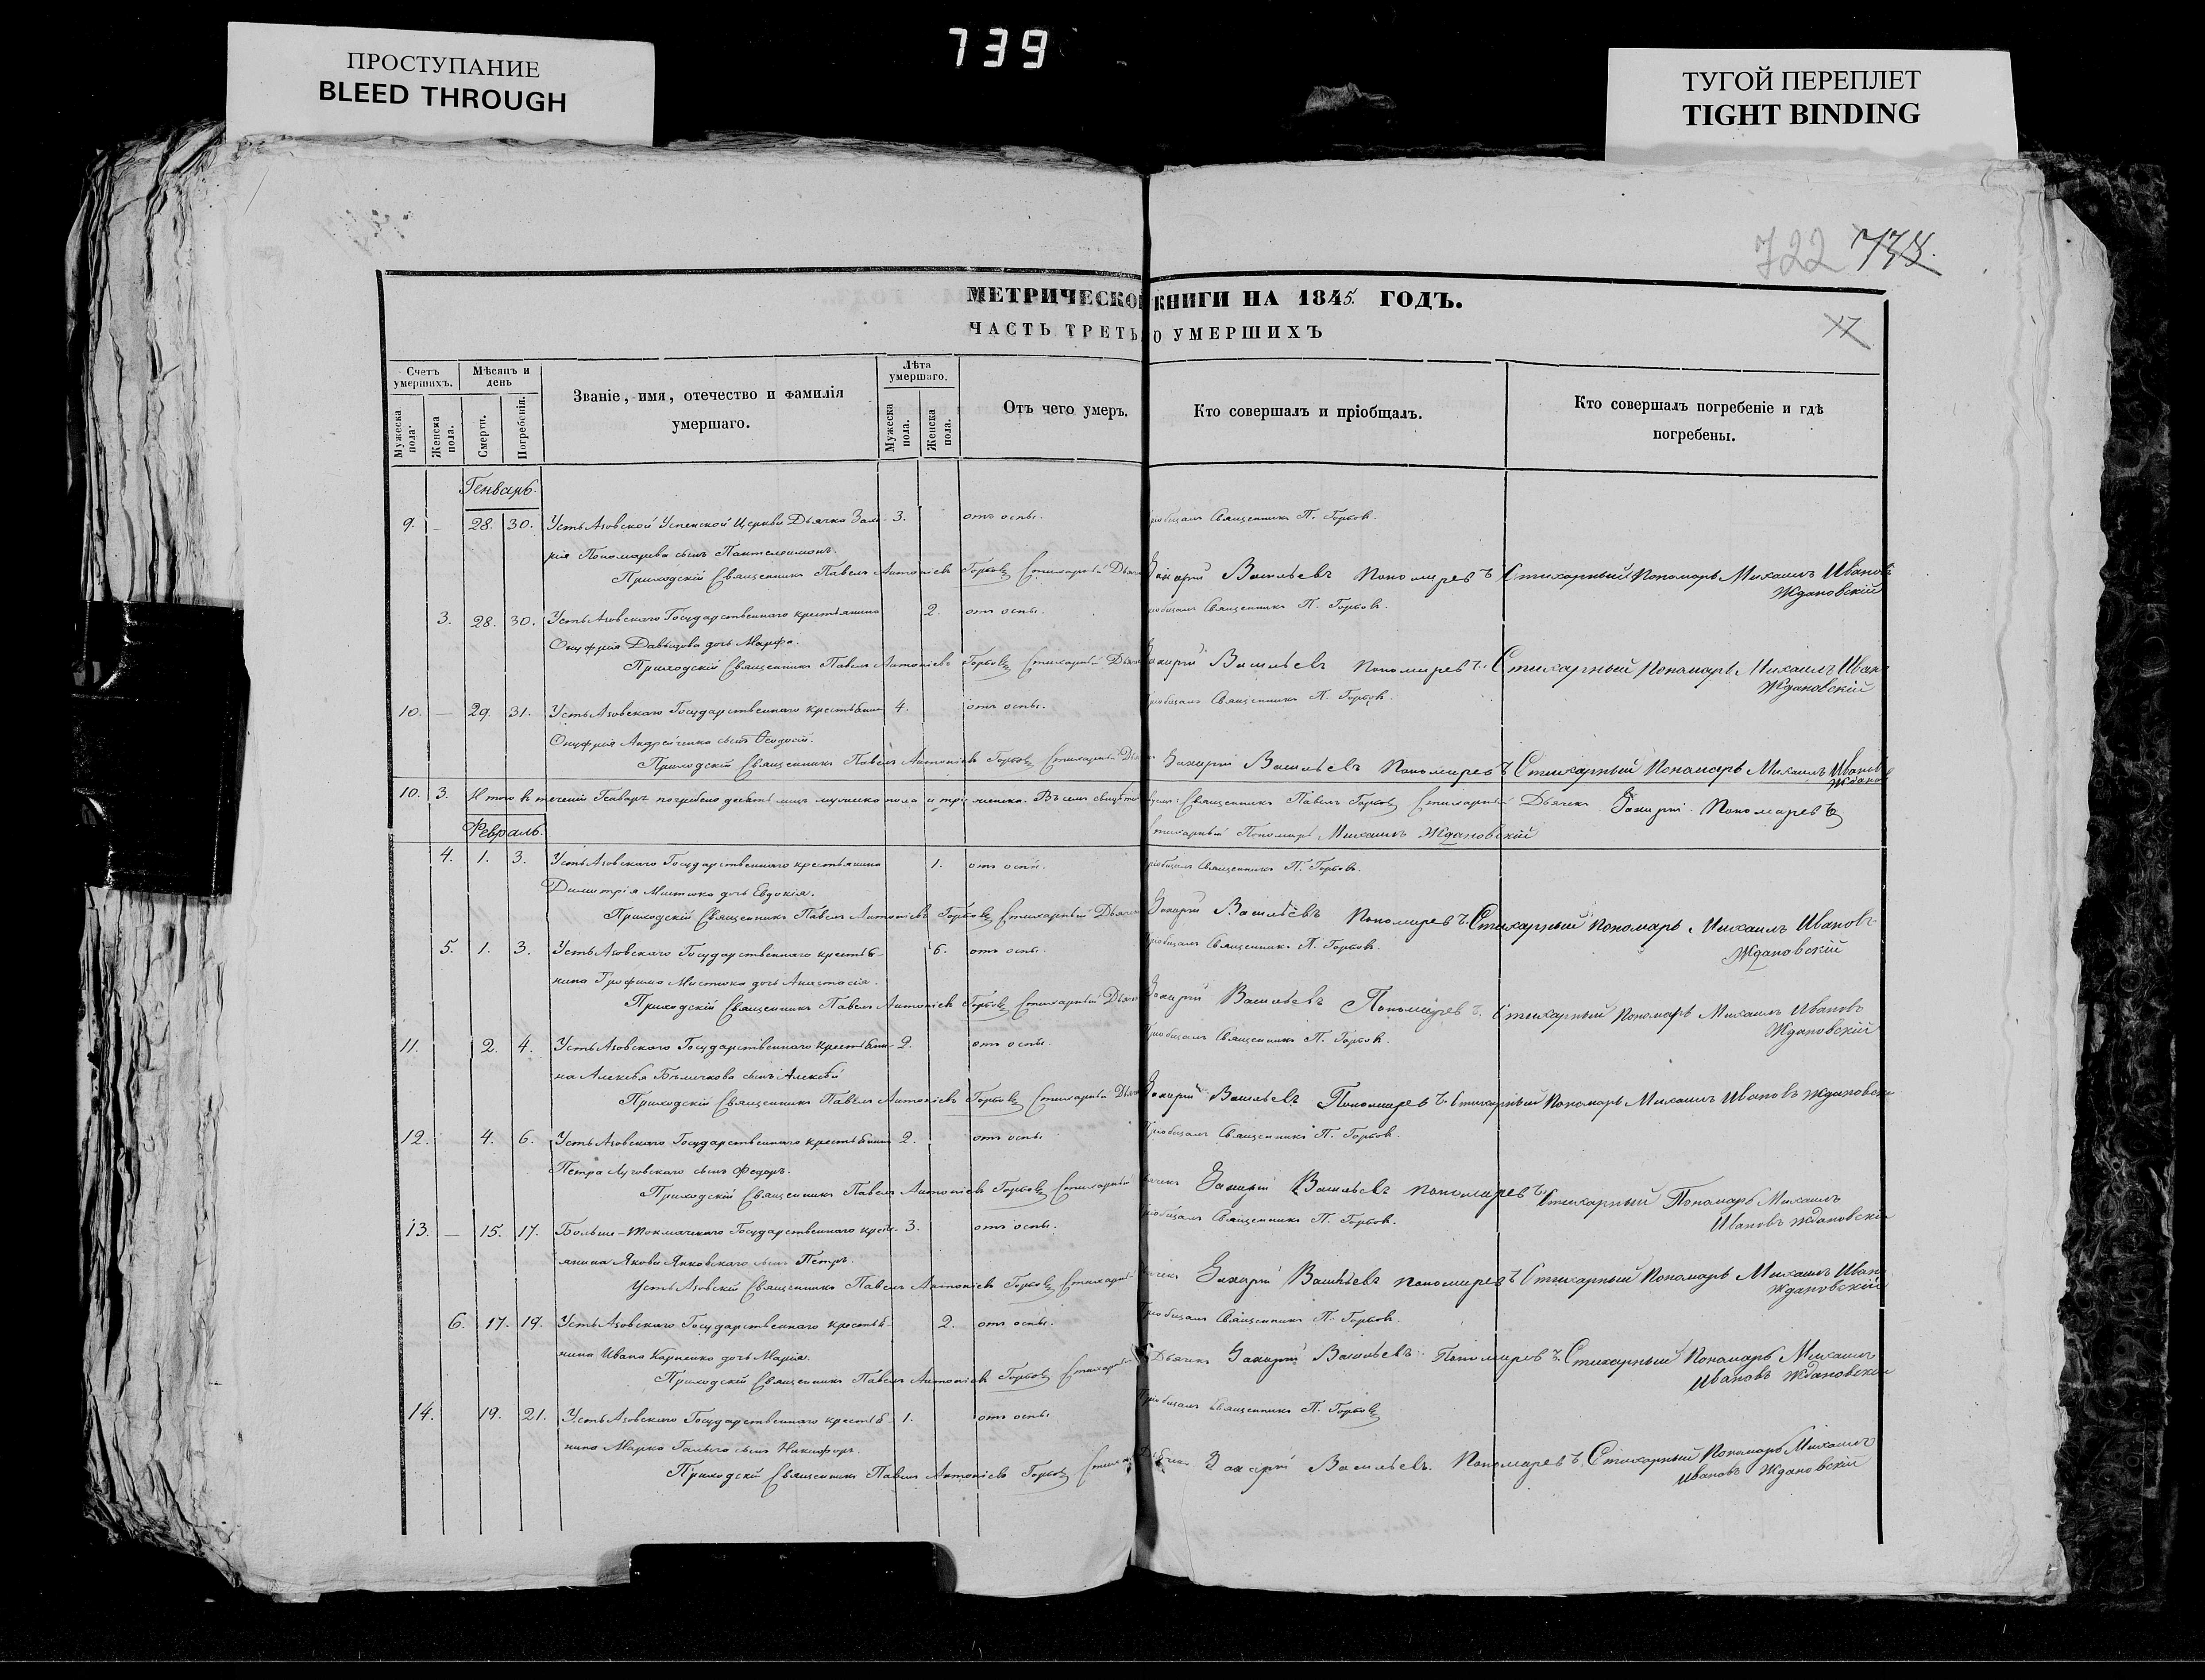 739
ПРОСТУПАНИЕ
BLEED THROUGH
ТУГОЙ ПЕРЕПЛЕТ
TIGHT BINDING
722 738.
МЕТРИЧЕСКО КНИГИ НА 1845. ГОДЪ.
ЧАСТЬ ТРЕТЬ О УМЕРШИХЪ
17
Счетъ умершихъ.
Мѣсяцъ и день
Званіе, имя, отечество и фамилія умершаго.
Лѣта умершаго.
Отъ чего умеръ.
Кто совершалъ и пріобщалъ.
Кто совершалъ погребеніе и гдѣ погребены.
Мужеска пола. Женска пола. Смерти. Погребенія. Мужеска пола. Женска пола.
Генварь.
9. – 28. 30. Усть Азовской Успенской Церкви Дьячка Заха- 3. отъ оспы. ріобщалъ Священникъ П. Горбов.
рія Пономарева сынъ Пантелеимонъ.
Приходскій Священникъ Павелъ Антоніевъ Горбовъ Стихарный Дьяч Захарій Васильевъ Пономаревъ Стихарный Пономарь Михаилъ Ивановъ
Ждановскій
3. 28. 30. Усть Азовскаго Государственнаго крестьянина 2. отъ оспы. ріобщалъ Священникъ П. Горбов.
Онуфрія Давыдова дочь Марфа.
Приходскій Священникъ Павелъ Антоніевъ Горбовъ Стихарный Дьяч Захарій Васильевъ Пономаревъ. Стихарный Пономарь Михаилъ Иван
Ждановскій
10. – 29. 31. Усть Азовскаго Государственнаго крестьянин 4. отъ оспы. ріобщалъ Священникъ П. Горбов.
Онуфрія Андрейченка сынъ Феодосій.
Приходскій Священникъ Павелъ Антоніевъ Горбовъ Стихарный Дья Захарій Васильевъ Пономаревъ Стихарный Пономарь Михаилъ Иванов
Ждановс
10. 3. Итого въ теченіи Генваря погребено десять лицъ мужеска пола и три женска. Въ семъ свидѣт Священникъ Павелъ Горбовъ Стихарный Дьячекъ Захарій Пономаревъ
Февраль. Стихарный Пономарь Михаилъ Ждановскій
4. 1. 3. Усть Азовскаго Государственнаго крестьянина 1. отъ оспы. ріобщалъ Священникъ П. Горбовъ.
Димитрія дочь Евдокія.
Приходскій Священникъ Павелъ Антоніевъ Горбовъ Стихарный Дьяч Захарій Васильевъ Пономаревъ. Стихарный Пономарь Михаилъ Ивановъ
Ждановскій
5. 1. 3. Усть Азовскаго Государственнаго крестья- 6. отъ оспы. Пріобщалъ Священникъ П. Горбов.
нина Трофима дочь Анастасія.
Приходскій Священникъ Павелъ Антоніевъ Горбовъ Стихарный Дьяч Захарій Васильевъ Пономаревъ. Стихарный Пономарь Михаилъ Ивановъ
Ждановскій
11. 2. 4. Усть Азовскаго Государственнаго крестьяни- 2. отъ оспы. Пріобщалъ Священникъ П. Горбов.
на Алексѣя Бѣличкова сынъ Алексѣй
Приходскій Священникъ Павелъ Антоніевъ Горбовъ Стихарный Дьяч Захарій Васильевъ Пономаревъ Стихарный Пономарь Михаилъ Ивановъ Ждановск
12. 4. 6. Усть Азовскаго Государственнаго крестьянин 2. отъ оспы Пріобщалъ Священникъ П. Горбов.
Петра Луговскаго сынъ Федоръ.
Приходскій Священникъ Павелъ Антоніевъ Горбовъ Стихарный ячекъ Захарій Васильевъ Пономаревъ Стихарный Пономарь Михаилъ
Ивановъ Ждановскі
13. – 15. 17. Больше-Токмачскаго Государственнаго крест- 3. отъ оспы. ріобщалъ Священникъ П. Горбов.
янина Якова Янковскаго сынъ Петръ.
Усть Азовскій Священникъ Павелъ Антоніевъ Горбовъ Стихарн ячекъ Захарій Васильевъ Пономаревъ Стихарный Пономарь Михаилъ Иван
Ждановскій
6. 17. 19. Усть Азовскаго Государственнаго крестья- 2. отъ оспы. Пріобщалъ Священникъ П. Горбов.
нина Ивана Карпенка дочь Марія.
Приходскій Священникъ Павелъ Антоніевъ Горбовъ Стихарны Дьячекъ Захарій Васильевъ Пономаревъ. Стихарный Пономарь Михаилъ
Ивановъ Ждановскі
14. 19. 21. Усть Азовскаго Государственнаго крестья- 1. отъ оспы Пріобщалъ Священникъ П. Горбовъ
нина Марка Галыча сынъ Никифоръ.
Приходскій Священникъ Павелъ Антоніевъ Горбовъ Стиха Дьячекъ Захарій Васильевъ. Пономаревъ Стихарный Пономарь Михаилъ
Ивановъ Ждановскій